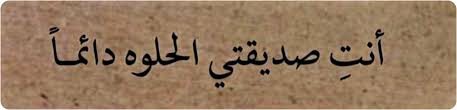 أنتِ صديقتي الحلوه دائمـاً